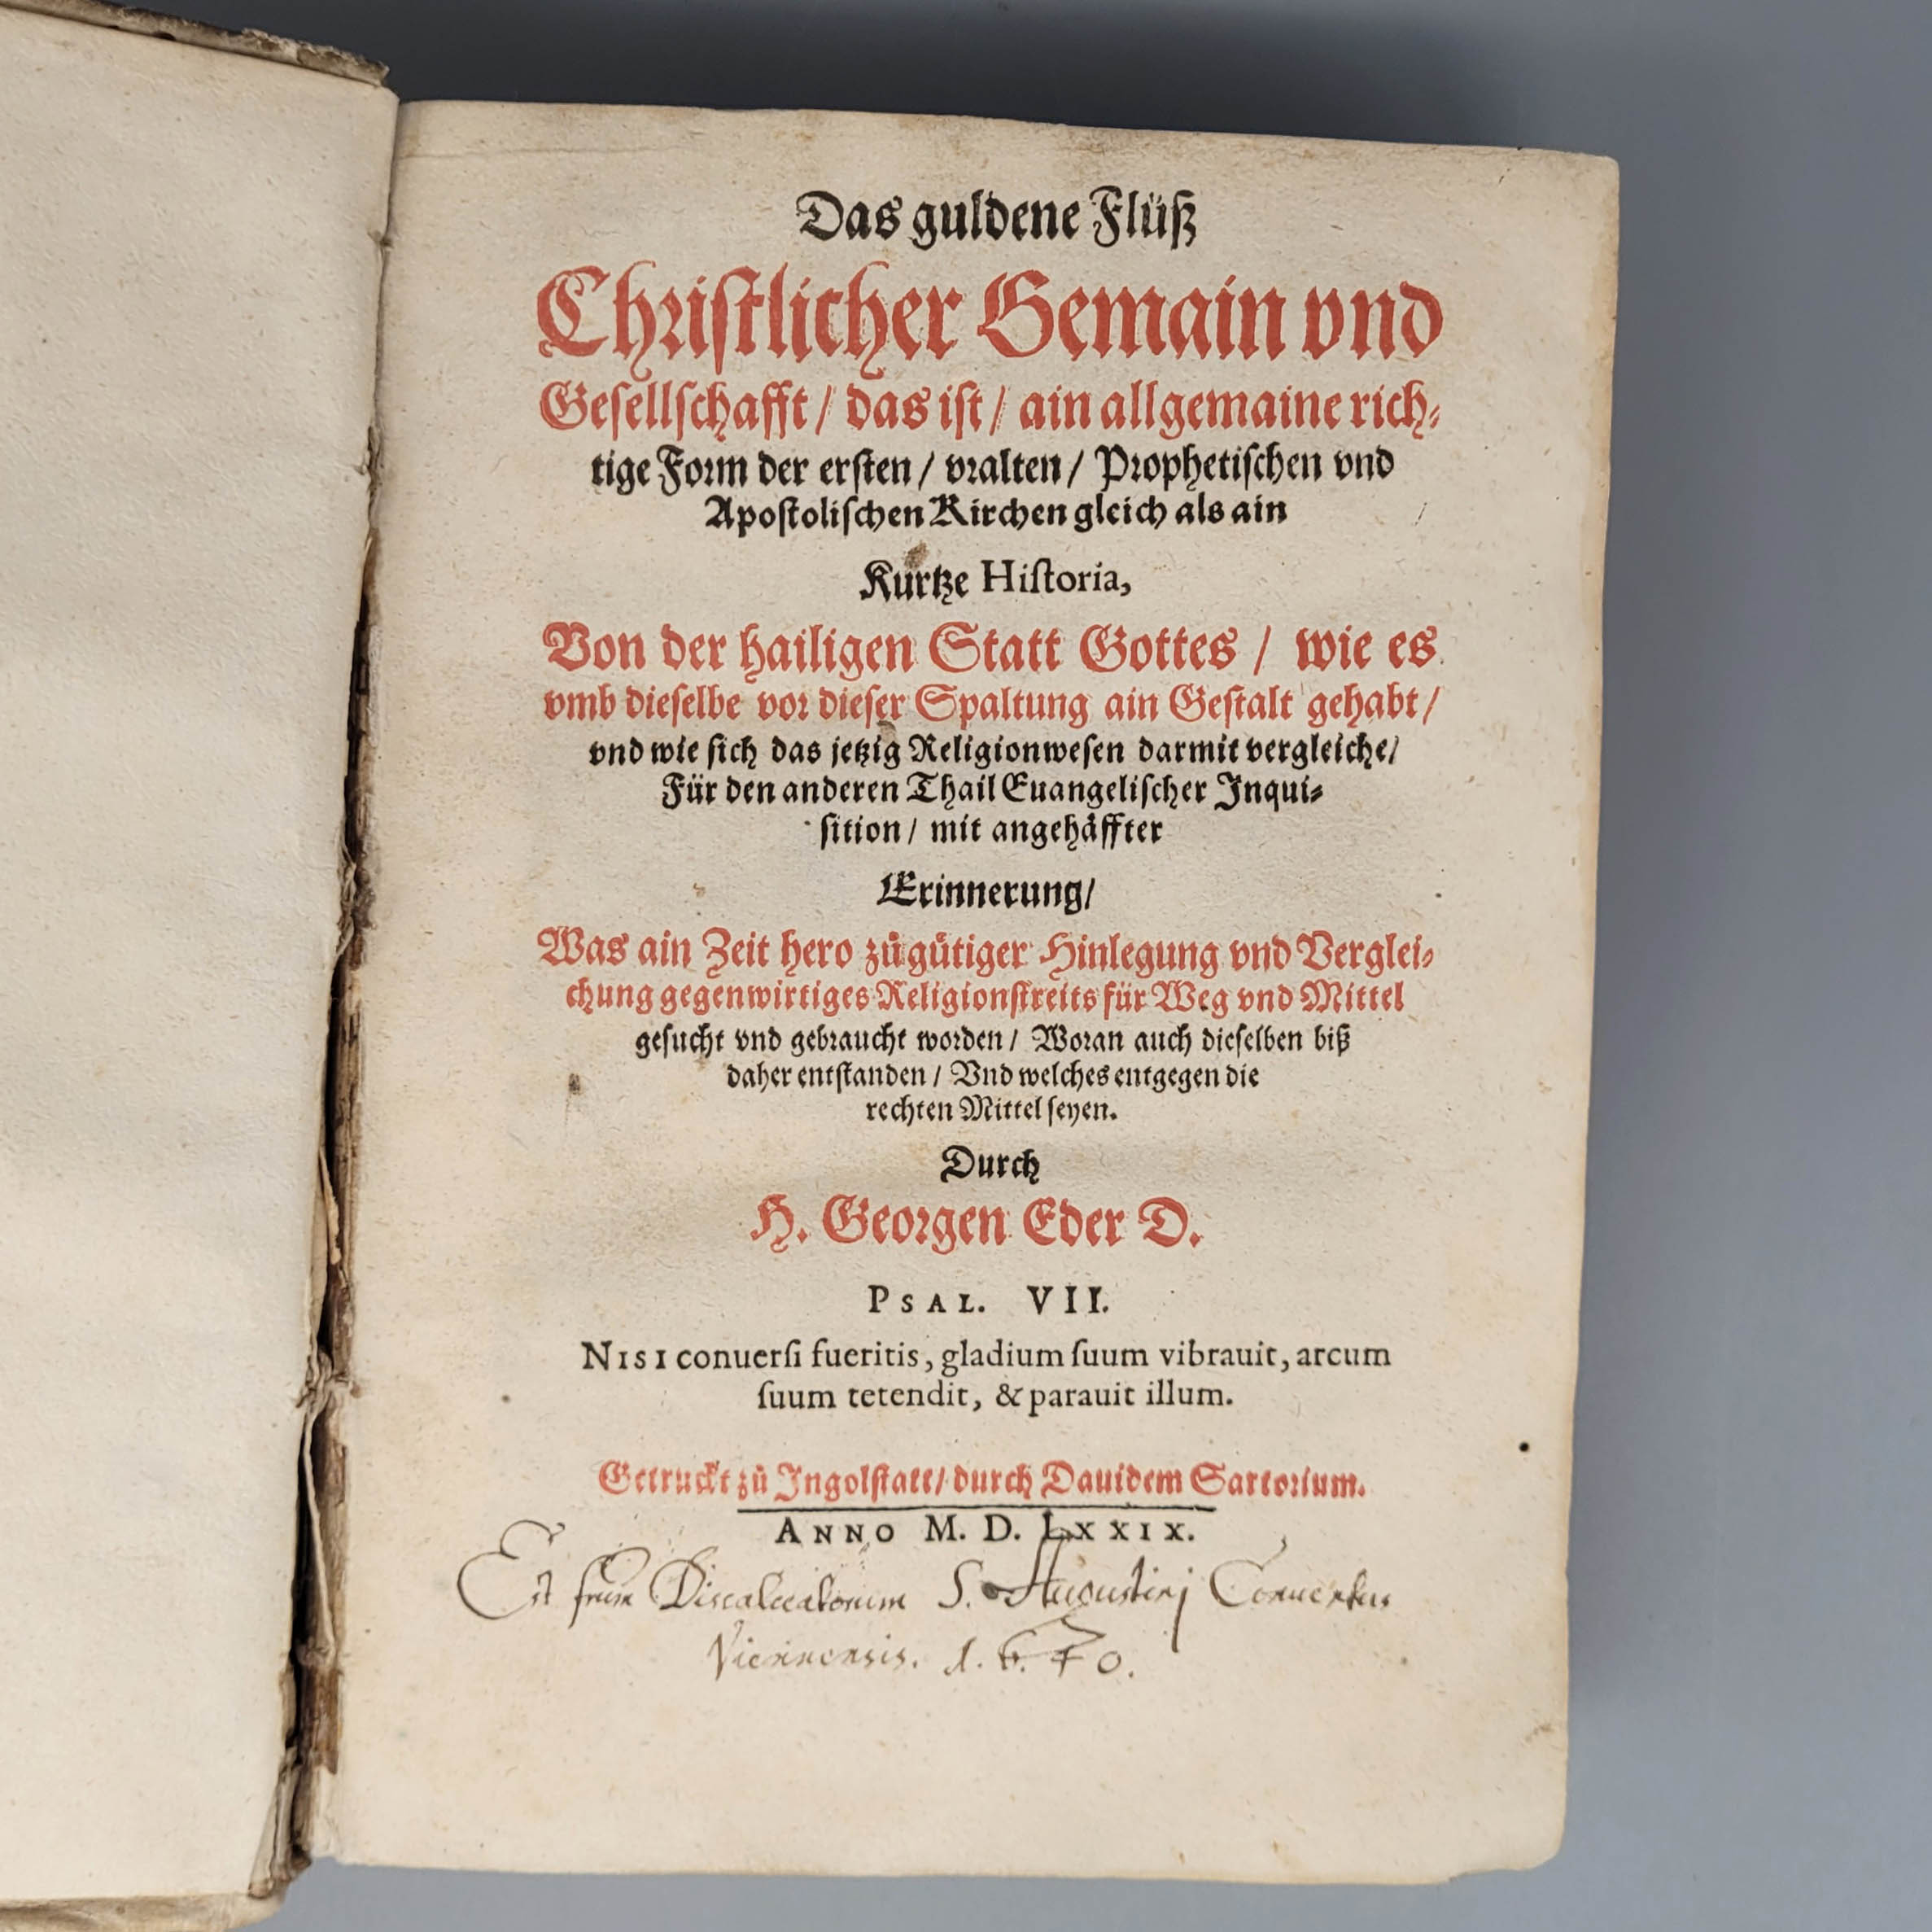 Das guldene Flüß
Christlicher Gemain vnd
Gesellschafft / das ist / ain allgemaine rich⸗
tige Form der ersten / vralten / Prophetischen vnd
Apostolischen Kirchen gleich als ain
Kurtze Historia,
Von der hailigen Statt Gottes / wie es
vmb dieselbe vor dieser Spaltung ain Gestalt gehabt /
vnd wie sich das jetzig Religionwesen darmit vergleiche /
Für den anderen Thail Euangelischer Inqui⸗
sition / mit angehäffter
Erinnerung /
Was ain Zeit hero zů gůtiger Hinlegung vnd Verglei⸗
chung gegenwirtiges Religionstreits für Weg vnd Mittel
gesucht vnd gebraucht worden / Woran auch dieselben biß
daher entstanden / Vnd welches entgegen die
rechten Mittel seyen.
Durch
H. Georgen Eder D.
PSAL. VII.
NISI conuersi fueritis, gladium suum vibrauit, arcum
suum tetendit, & parauit illum.
Getruckt zů Ingolstatt / durch Dauidem Sartorium.
ANNO M. D. LXXIX.
Est frum Discalceatorum S. Augustinj Conuentus
Viennensis. 1.6.40.